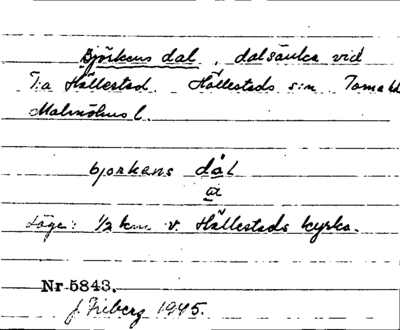 Björkens dal, dalsänka vid
T:a Hällestad Hällestads s:n Torna hd
Malmöhus l.
bjorkens dål
Läge: 1/2 km v. Hällestads kyrka.
Nr 5843.
J. Fieberg 1945.